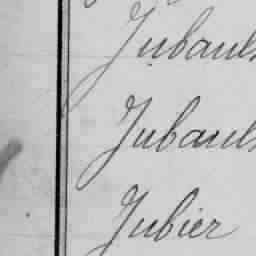 Jubault
Jubault
Jubier